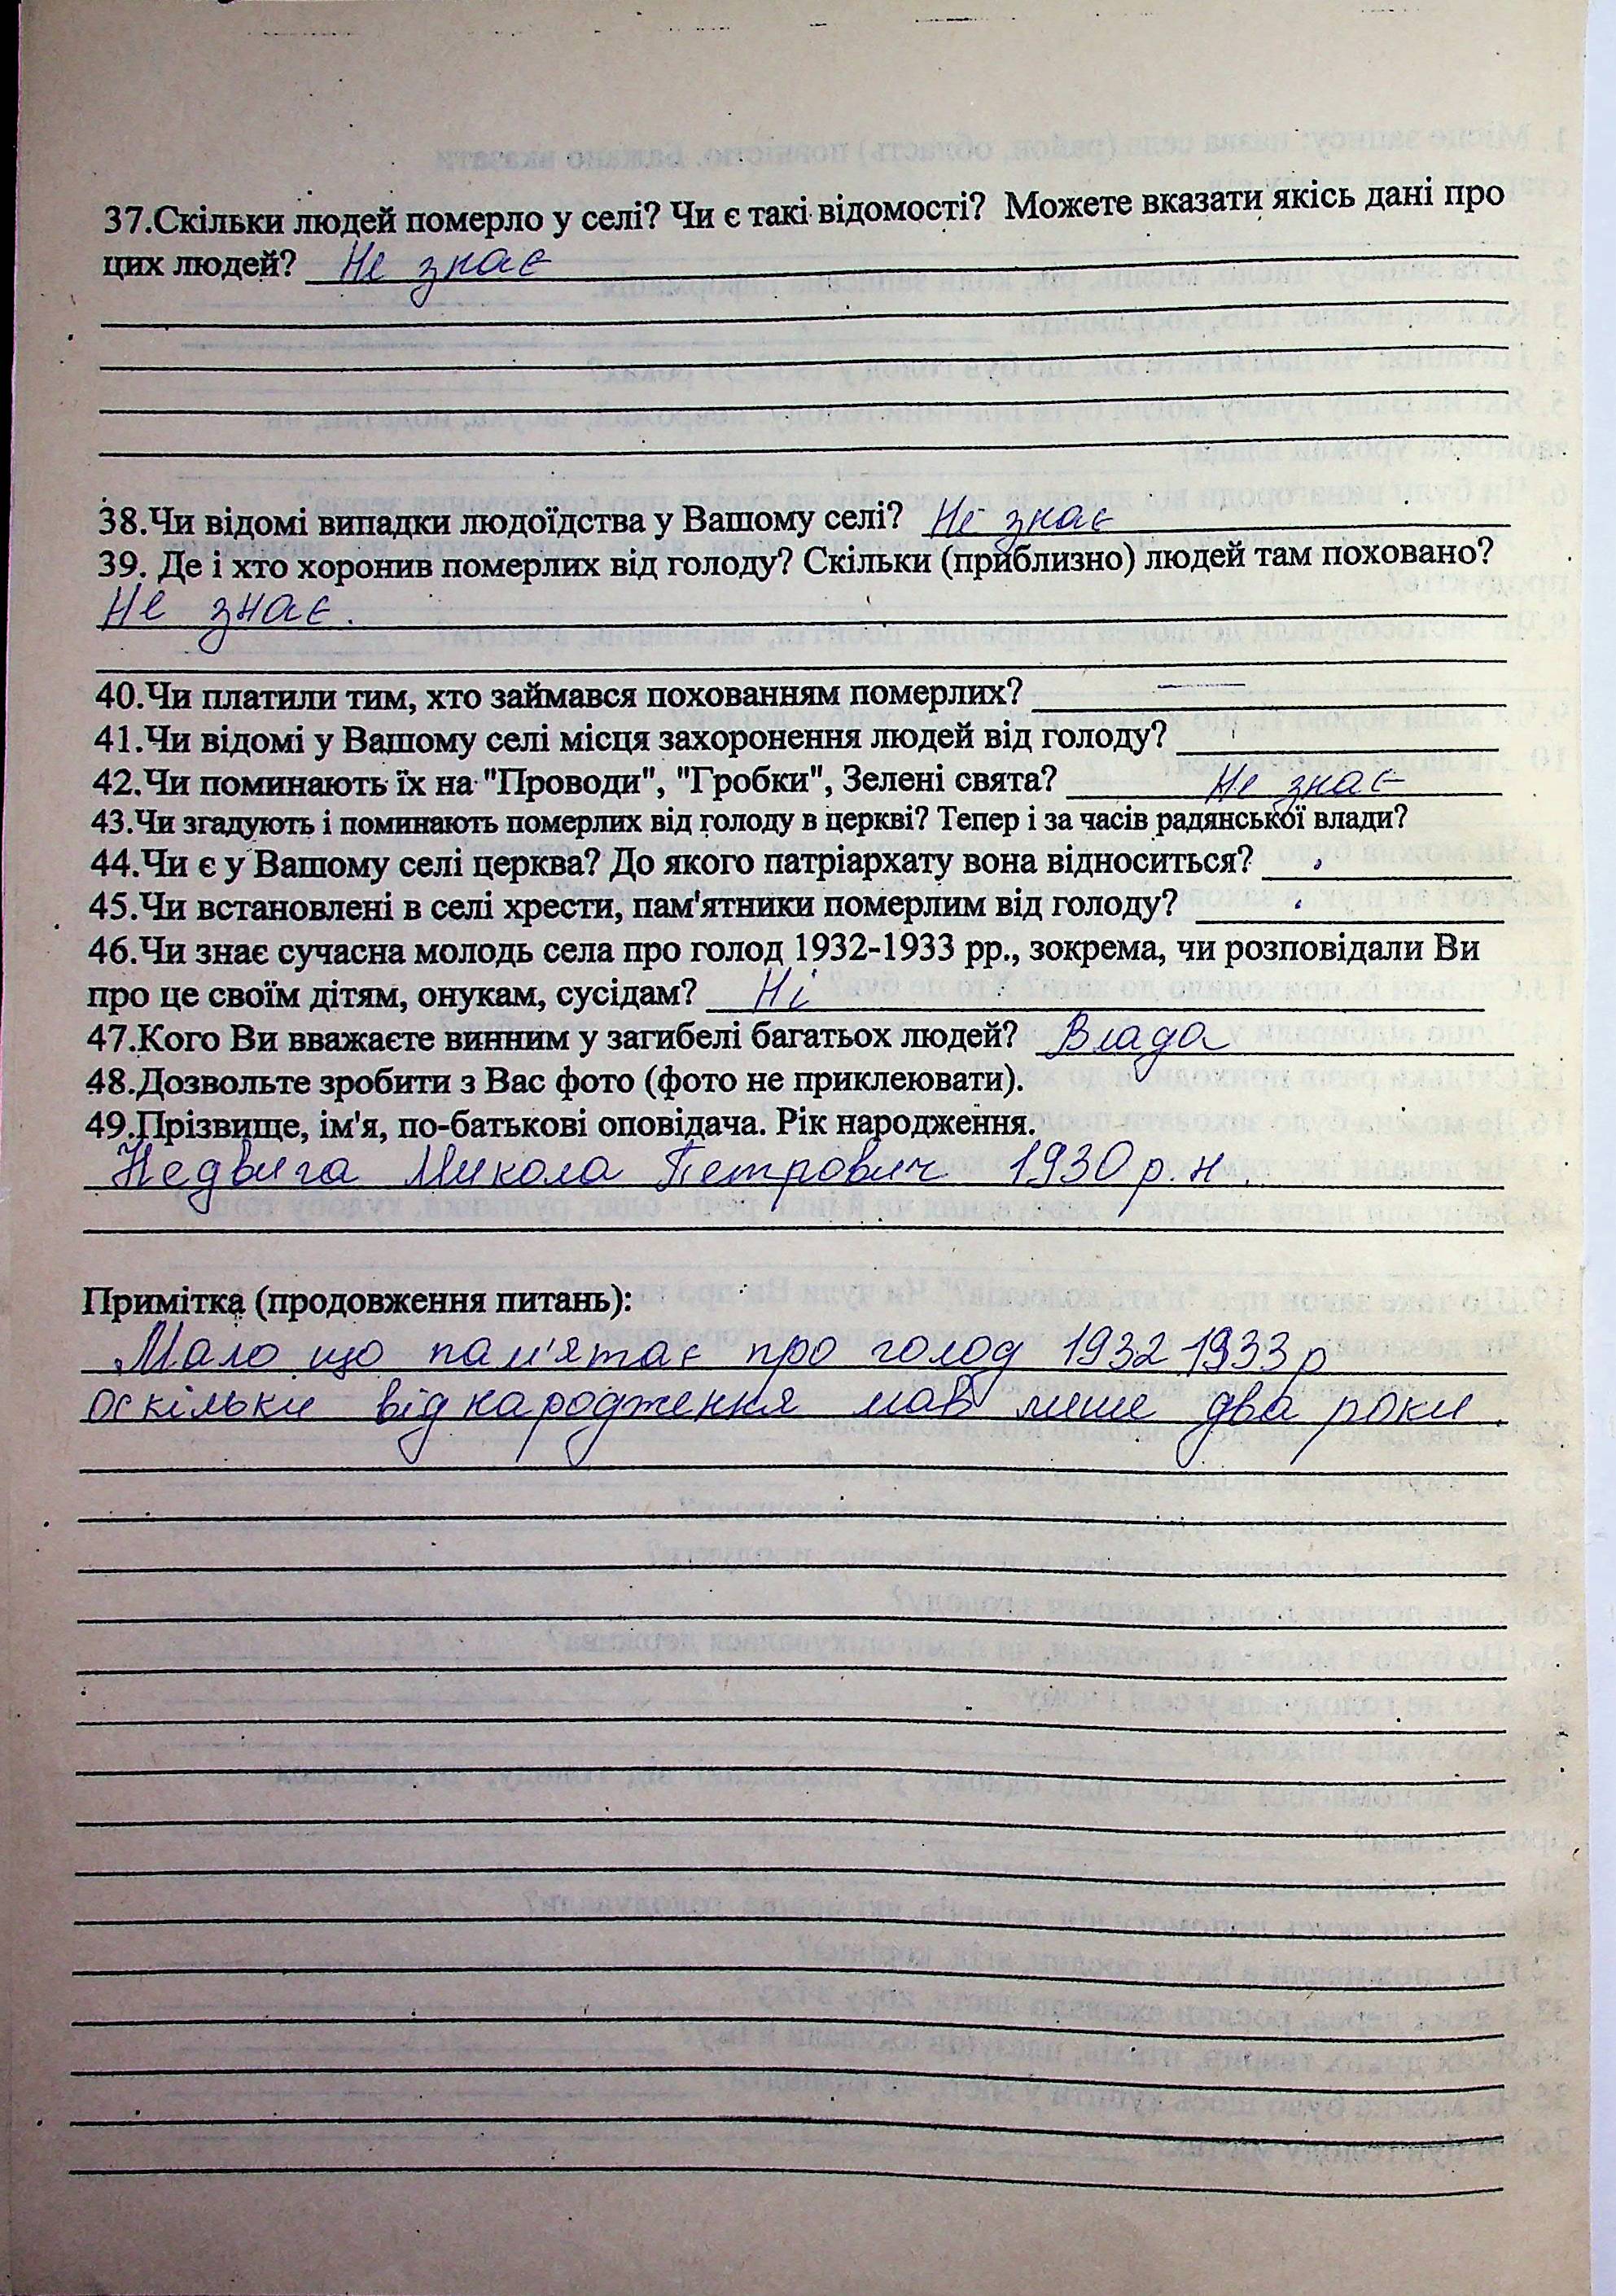 37.Скільки людей померло у селі? Чи є такі відомості? Можете вказати якісь дані про
цих людей? Не знає
38.Чи відомі випадки людоїдства у Вашому селі? Не знає
39. Де і хто хоронив померлих від голоду? Скільки (приблизно) людей там поховано?
Не знає.
40.Чи платили тим, хто займався похованням померлих? —
41.Чи відомі у Вашому селі місця захоронення людей від голоду?
42.Чи поминають їх на "Проводи", "Гробки", Зелені свята? Не знає
43.Чи згадують і поминають померлих від голоду в церкві? Тепер і за часів радянської влади?
44.Чи є у Вашому селі церква? До якого патріархату вона відноситься?
45.Чи встановлені в селі хрести, пам'ятники померлим від голоду?
46.Чи знає сучасна молодь села про голод 1932-1933 рр., зокрема, чи розповідали Ви
про це своїм дітям, онукам, сусідам? Ні
47.Кого Ви вважаєте винним у загибелі багатьох людей? Влада
48.Дозвольте зробити з Вас фото (фото не приклеювати).
49.Прізвище, ім'я, по-батькові оповідача. Рік народження.
Недвига Микола Петрович 1930 р.н.
Примітка (продовження питань):
Мало що пам'ятає про голод 1932 1933 р
оскільки від народження мав лише два роки.